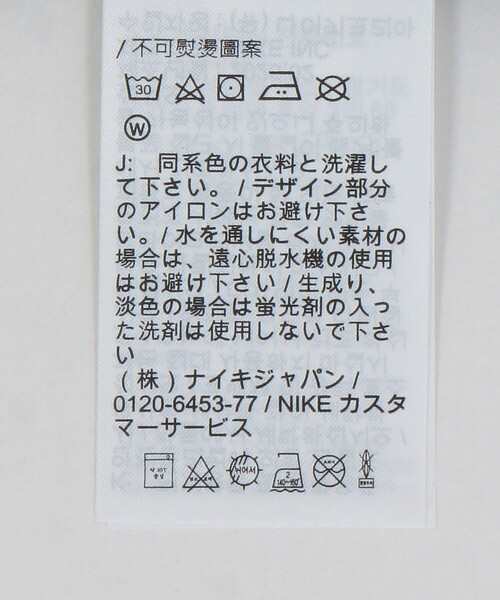 / 不可熨燙圖案
30
W
J:　同系色の衣料と洗濯し
て下さい。 / デザイン部分
のアイロンはお避け下さ
い。/ 水を通しにくい素材の
場合は、遠心脱水機の使用
はお避け下さい / 生成り、
淡色の場合は蛍光剤の入っ
た洗剤は使用しないで下さ
い
（ 株 ）ナイキジャパン /
0120-6453-77 / NIKE カスタ
マーサービス